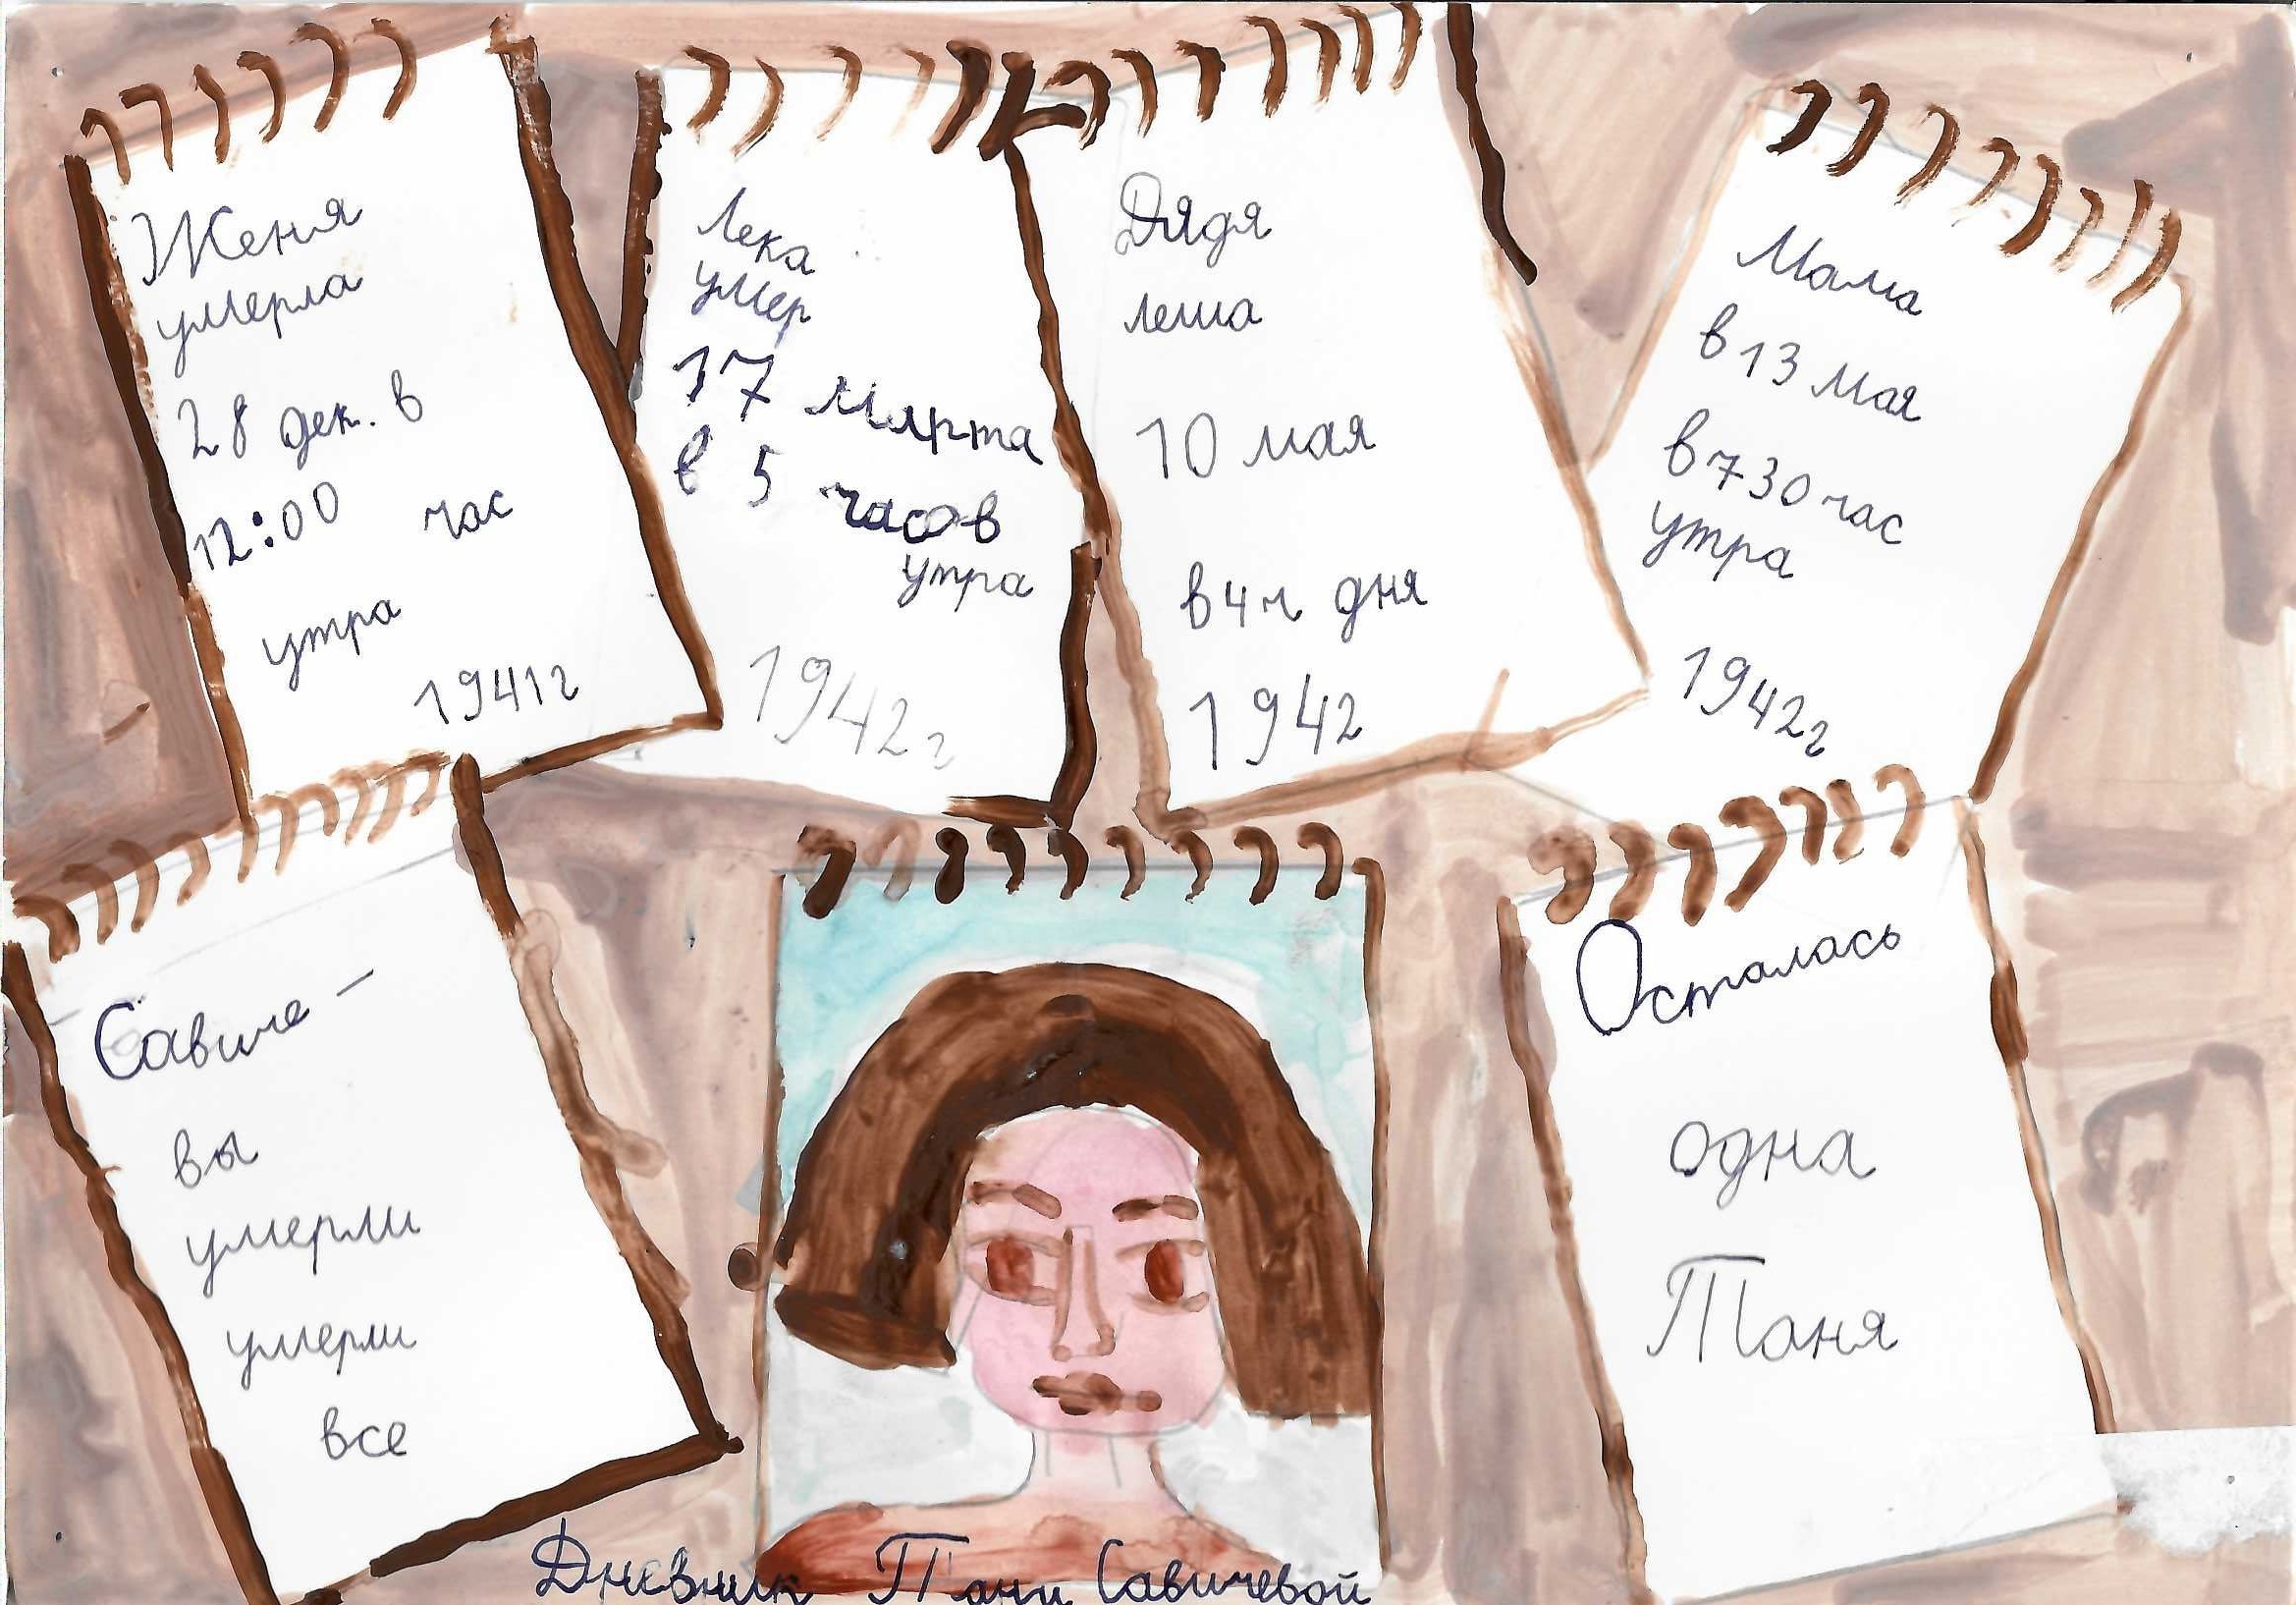 Женя
умерла
28 дек. в
12:00 час
утра
1941г
Лека
умер
17 марта
в 5 часов
утра
1942г
Дядя
леша
10 мая
в 4ч дня
1942
Мама
в 13 мая
в 7 30 час
утра
1942г
Савиче –
вы
умерли
умерли
все
Осталась
одна
Таня
Дневник Тани Савичевой